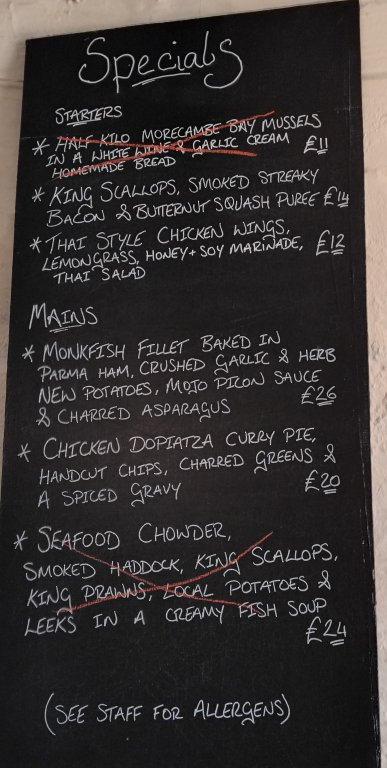 Specials
STARTERS
* HALF KILO MORECAMBE BAY MUSSELS
IN A WHITE WINE & GARLIC CREAM £11
HOMEMADE BREAD
* KING SCALLOPS, SMOKED STREAKY
BACON & BUTTERNUT SQUASH PUREE £14
* THAI STYLE CHICKEN WINGS,
LEMONGRASS, HONEY + SOY MARINADE, £12
THAI SALAD
MAINS
* MONKFISH FILLET BAKED IN
PARMA HAM, CRUSHED GARLIC & HERB
NEW POTATOES, MOJO PICON SAUCE
& CHARRED ASPARAGUS £26
* CHICKEN DOPIATZA CURRY PIE,
HANDCUT CHIPS, CHARRED GREENS &
A SPICED GRAVY £20
* SEAFOOD CHOWDER,
SMOKED HADDOCK, KING SCALLOPS,
KING PRAWNS, LOCAL POTATOES &
LEEKS IN A CREAMY FISH SOUP
£24
(SEE STAFF FOR ALLERGENS)